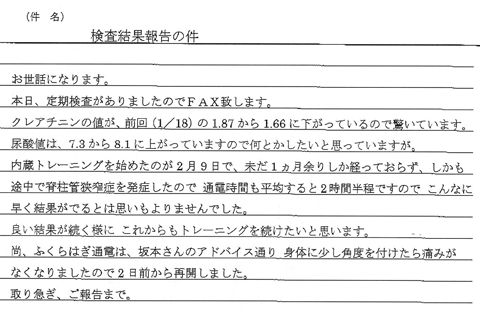 （件　名）
検査結果報告の件
お世話になります。
本日、定期検査がありましたのでＦＡＸ致します。
クレアチニンの値が、前回（1／18）の 1.87 から 1.66 に下がっているので驚いています。
尿酸値は、7.3 から 8.1 に上がっていますので何とかしたいと思っていますが。
内蔵トレーニングを始めたのが２月９日で、未だ１ヵ月余りしか経っておらず、しかも
途中で脊柱管狭窄症を発症したので 通電時間も平均すると２時間半程ですので こんなに
早く結果がでるとは思いもよりませんでした。
良い結果が続く様に これからもトレーニングを続けたいと思います。
尚、ふくらはぎ通電は、坂本さんのアドバイス通り 身体に少し角度を付けたら痛みが
なくなりましたので２日前から再開しました。
取り急ぎ、ご報告まで。